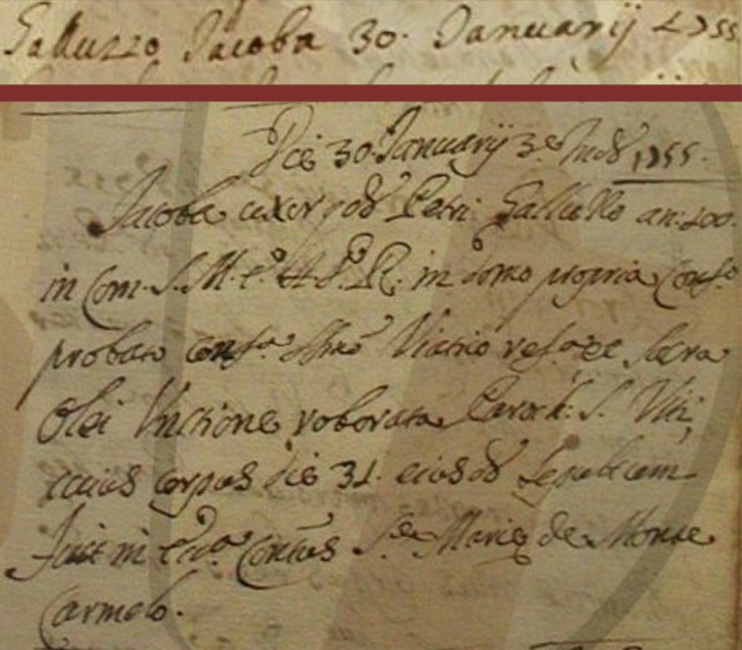 Galluzzo Jacoba 30. Januarij 1755
Die 30. Januarij 3e Ind: 1755.
Jacoba uxor qod Petri Galluzzo an: 100.
in Com. S. M. E. in domo propria Confo
probato confa Viatico refa et sacra
Olei Unctione roborata Paroch: S. Viti,
cuius corpus die 31. eiusd sepultum
fuit in Contus Se Marie de Monte
Carmelo.